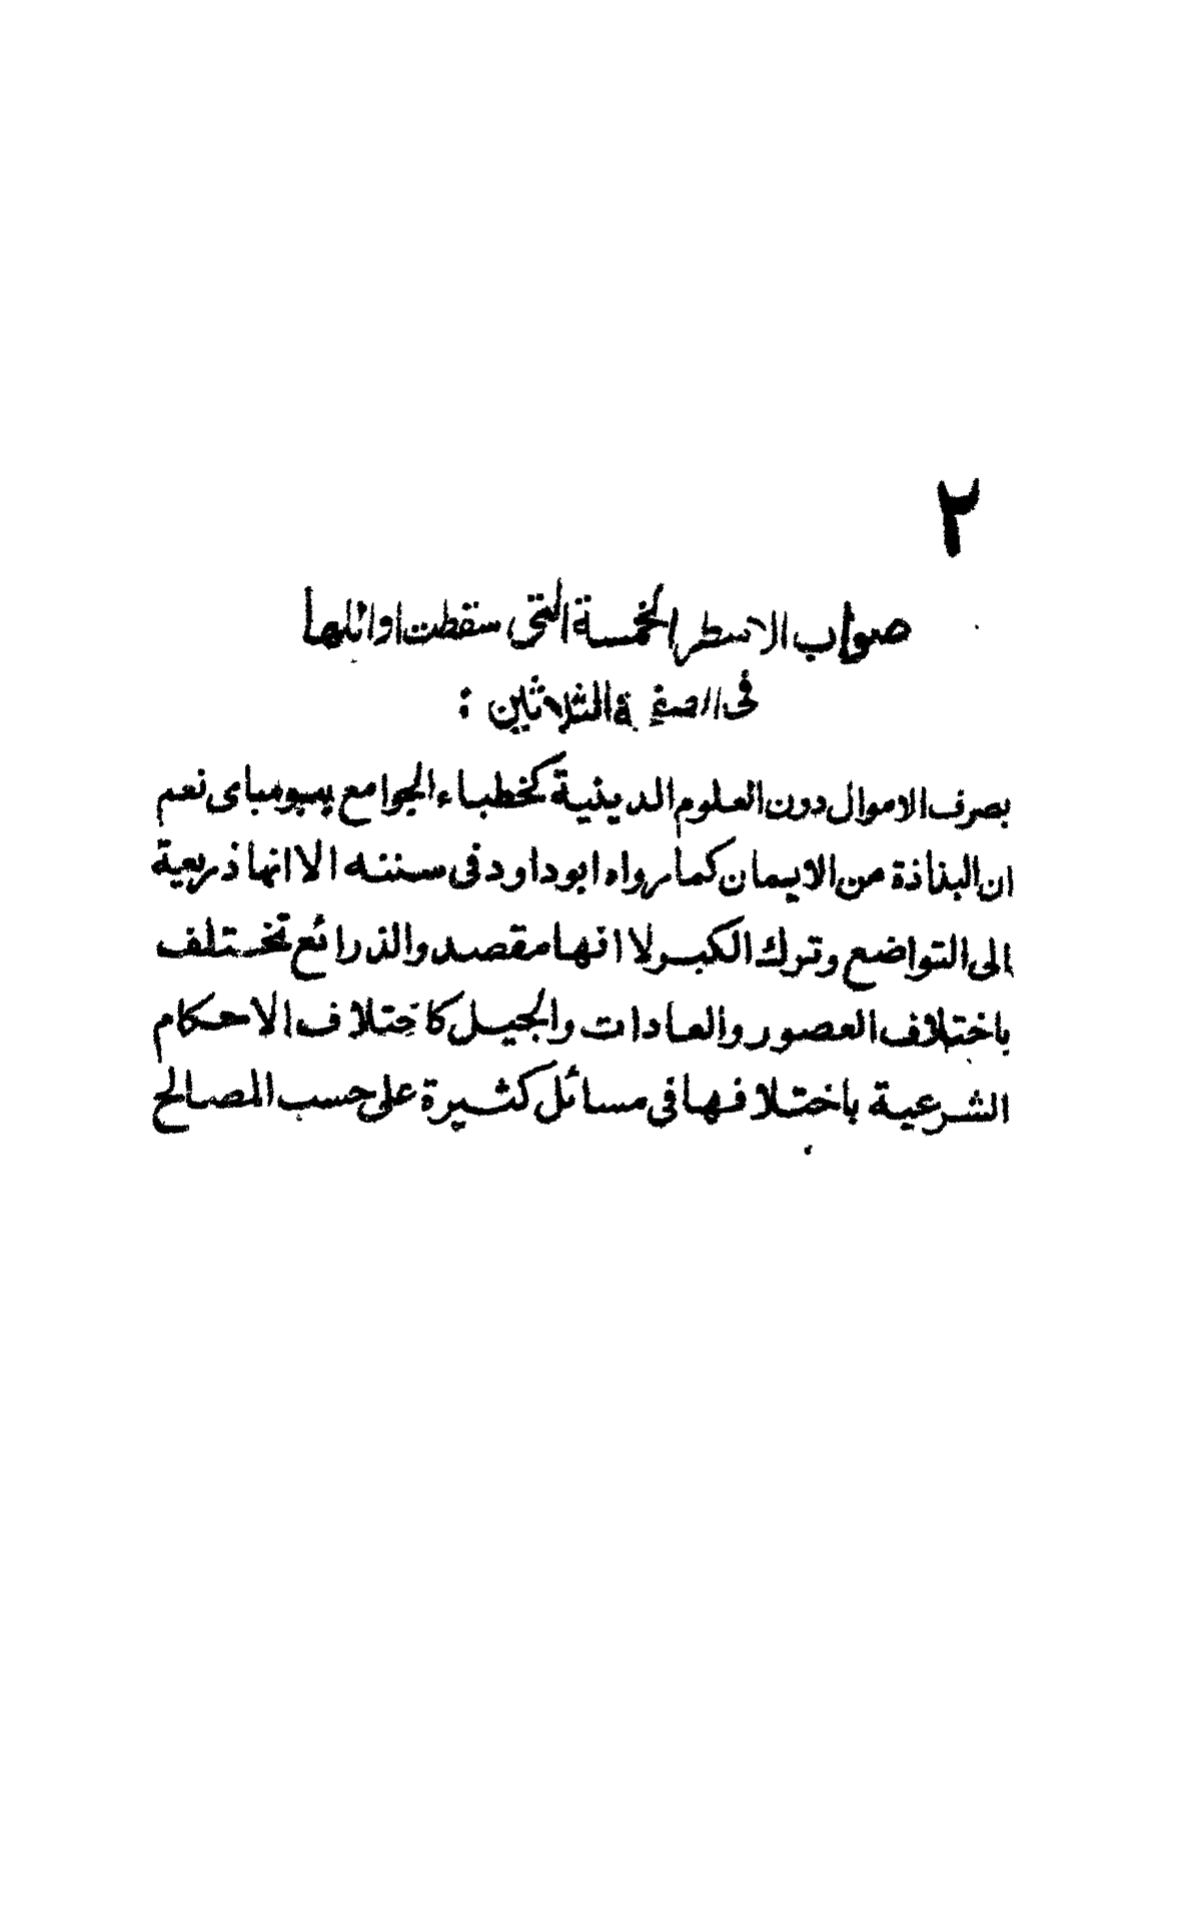 ٢
صواب الاسطر الخمسة التى سقطت اوائلها
فى الصفحة الثلاثين :
بصرف الاموال دون العلوم الدينية كخطباء الجوامع ببومباى نعم
ان البذاذة من الايمان كما رواه ابو داود فى سننه الا انها ذريعية
الى التواضع وترك الكبر لا انها مقصد والذرائع تختلف
باختلاف العصور والعادات والجيل كاختلاف الاحكام
الشرعية باختلافها فى مسائل كثيرة على حسب المصالح